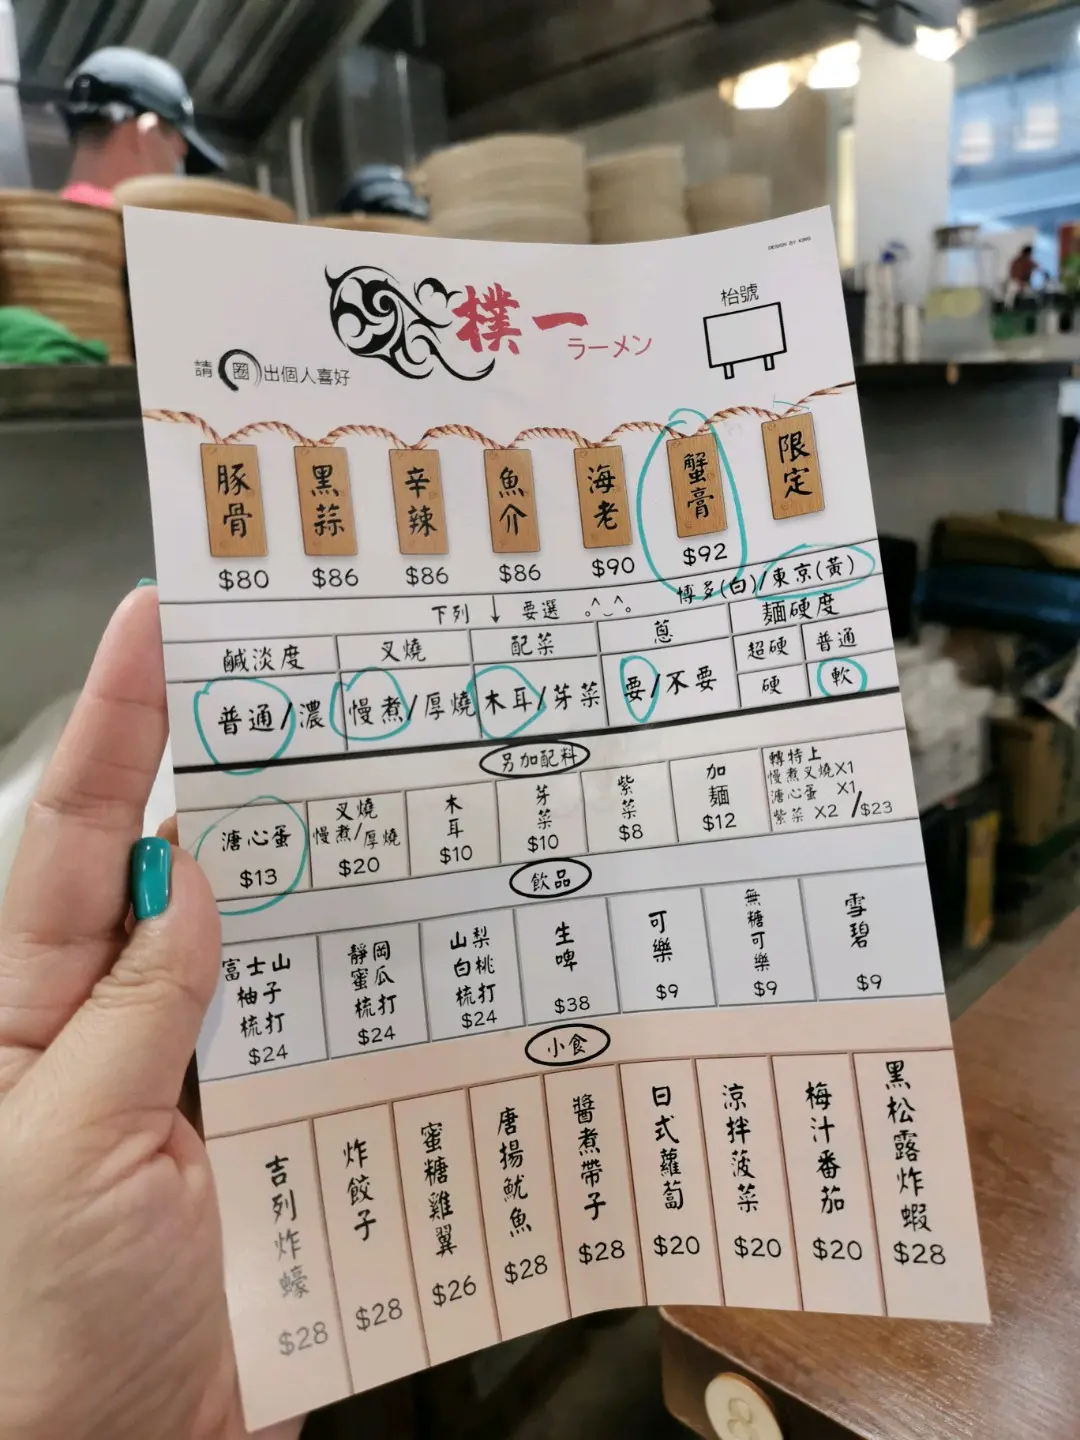 DESIGN BY KING
樸一
ラーメン
枱號
請圈出個人喜好
豚骨 $80
黑蒜 $86
辛辣 $86
魚介 $86
海老 $90
蟹膏 $92
限定
下列↓要選 ｡^‿^｡
博多(白)/東京(黃)
鹹淡度
叉燒
配菜
蔥
麵硬度
普通/濃
慢煮/厚燒
木耳/芽菜
要/不要
超硬
普通
硬
軟
另加配料
溏心蛋
$13
叉燒
慢煮/厚燒
$20
木耳
$10
芽菜
$10
紫菜
$8
加麵
$12
轉特上
慢煮叉燒X1
溏心蛋 X1
紫菜 X2 /$23
飲品
富士山
柚子
梳打
$24
靜岡
蜜瓜
梳打
$24
山梨
白桃
梳打
$24
生啤
$38
可樂
$9
無糖可樂
$9
雪碧
$9
小食
吉列炸蠔
$28
炸餃子
$28
蜜糖雞翼
$26
唐揚魷魚
$28
醬煮帶子
$28
日式蘿蔔
$20
涼拌菠菜
$20
梅汁番茄
$20
黑松露炸蝦
$28